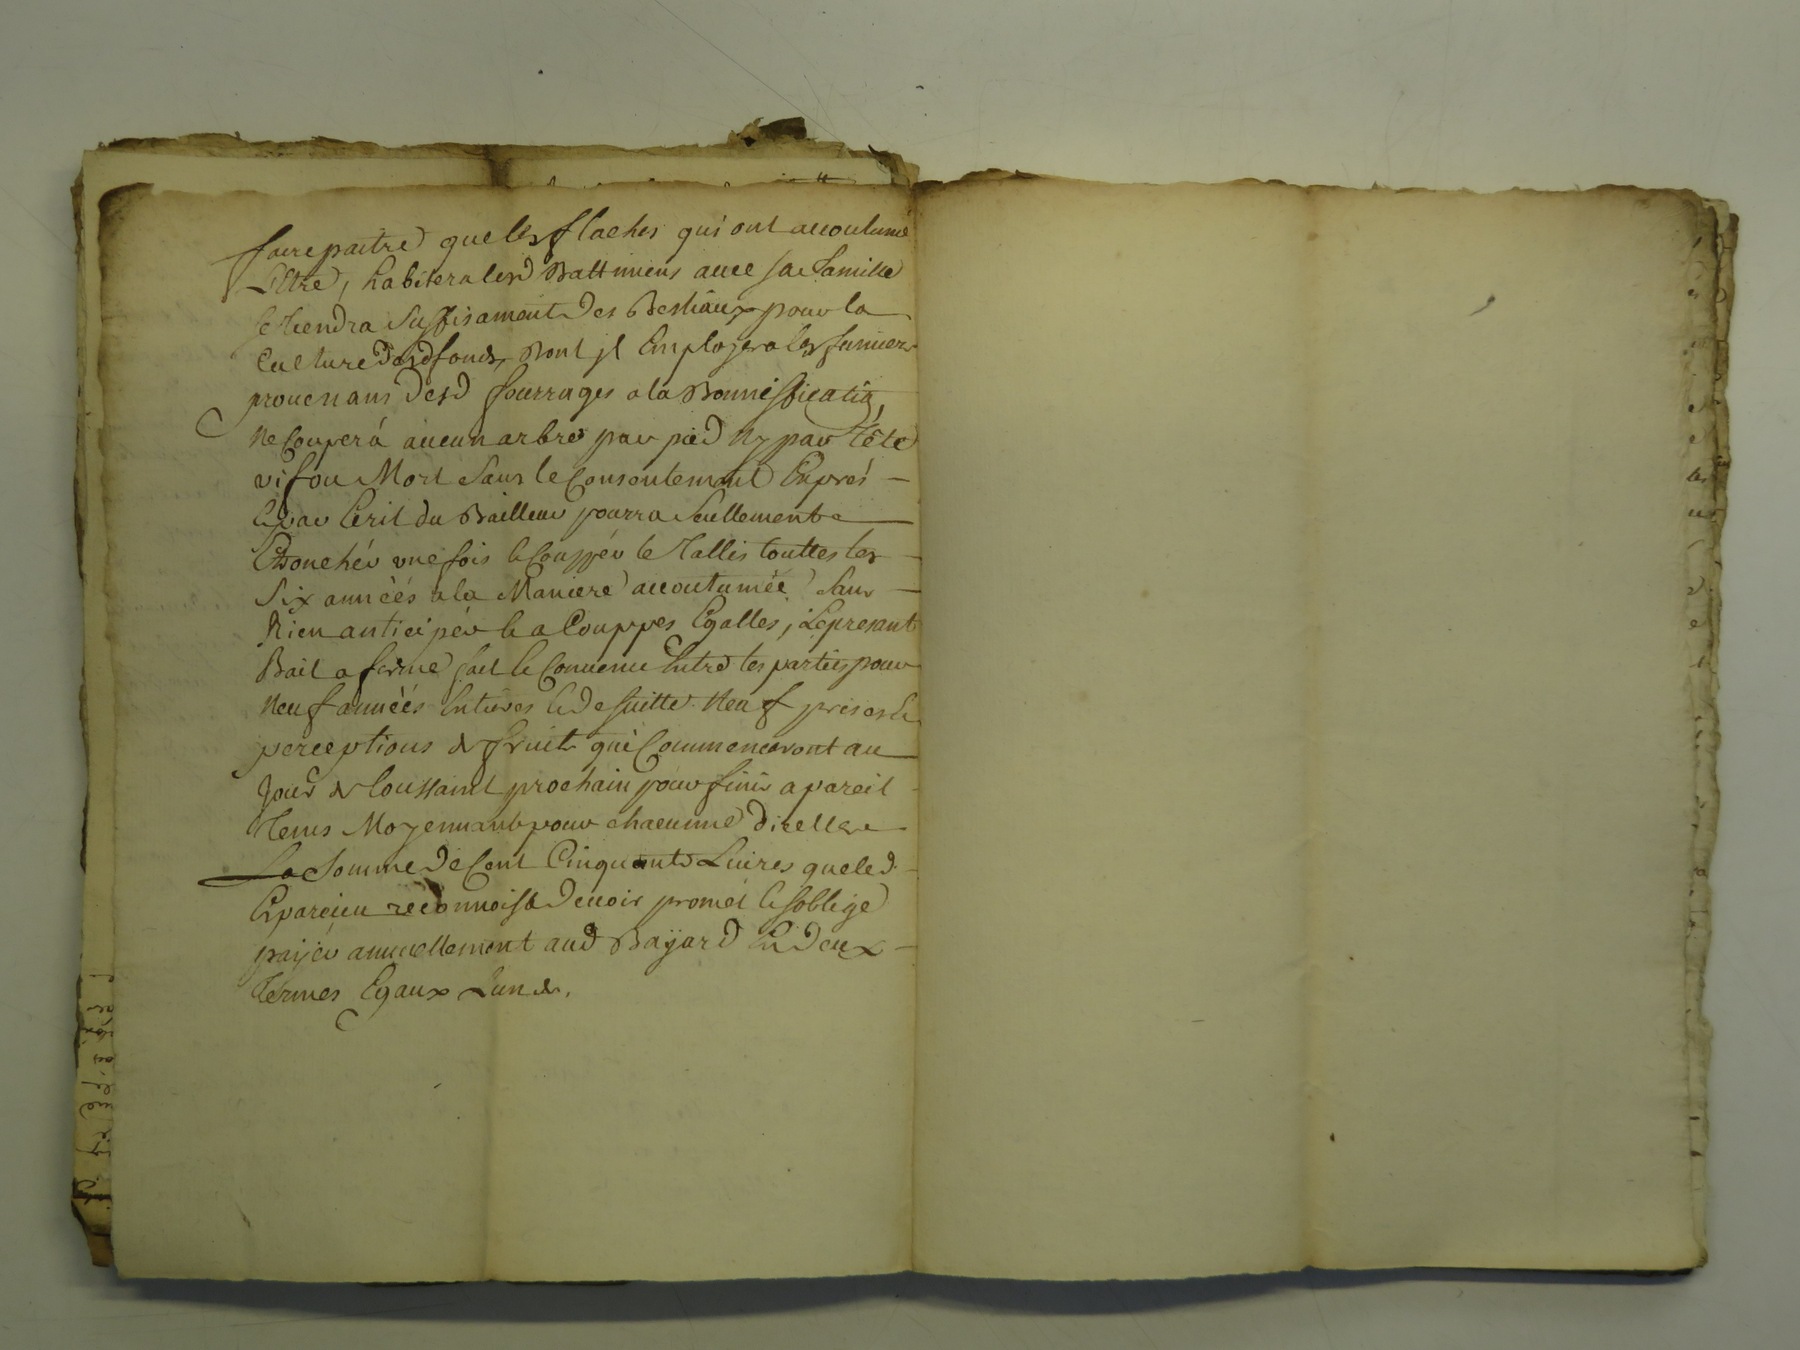 faire paitre que les flaches qui ont accoutumé
L'Etre, habitera lesd Battimens avec sa famille
se tiendra suffisament des Bestiaux pour la
Culture desd fonds, Dont jl Employera les fumiers
provenans desd fourrages a la Bonniffication,
Ne Coupera aucun arbre par pied ny par tête
vif ou Mort Sans le Consentement Exprés
Et par Ecrit du Bailleur pourra Seullement
Ebouchér une fois & Couppér le Tallis touttes les
Six années a la Maniere accoutumée Sans
Rien anticipér & a Couppes Egalles; Le present
Bail a ferme fait & Convenu Entre les parties pour
Neuf années Entieres & De suitte Neuf prises &
perceptions de fruits qui Commenceront au
Jour de Toussaint prochain pour finir a pareil
Tems Moyennant pour chacunne dicelles
La Somme de Cent Cinquante Livres que led.
Eparcieu reconnoist Devoir promet & soblige
païjér annuellement aud Bayard En deux
Termes Egaux L'un de.